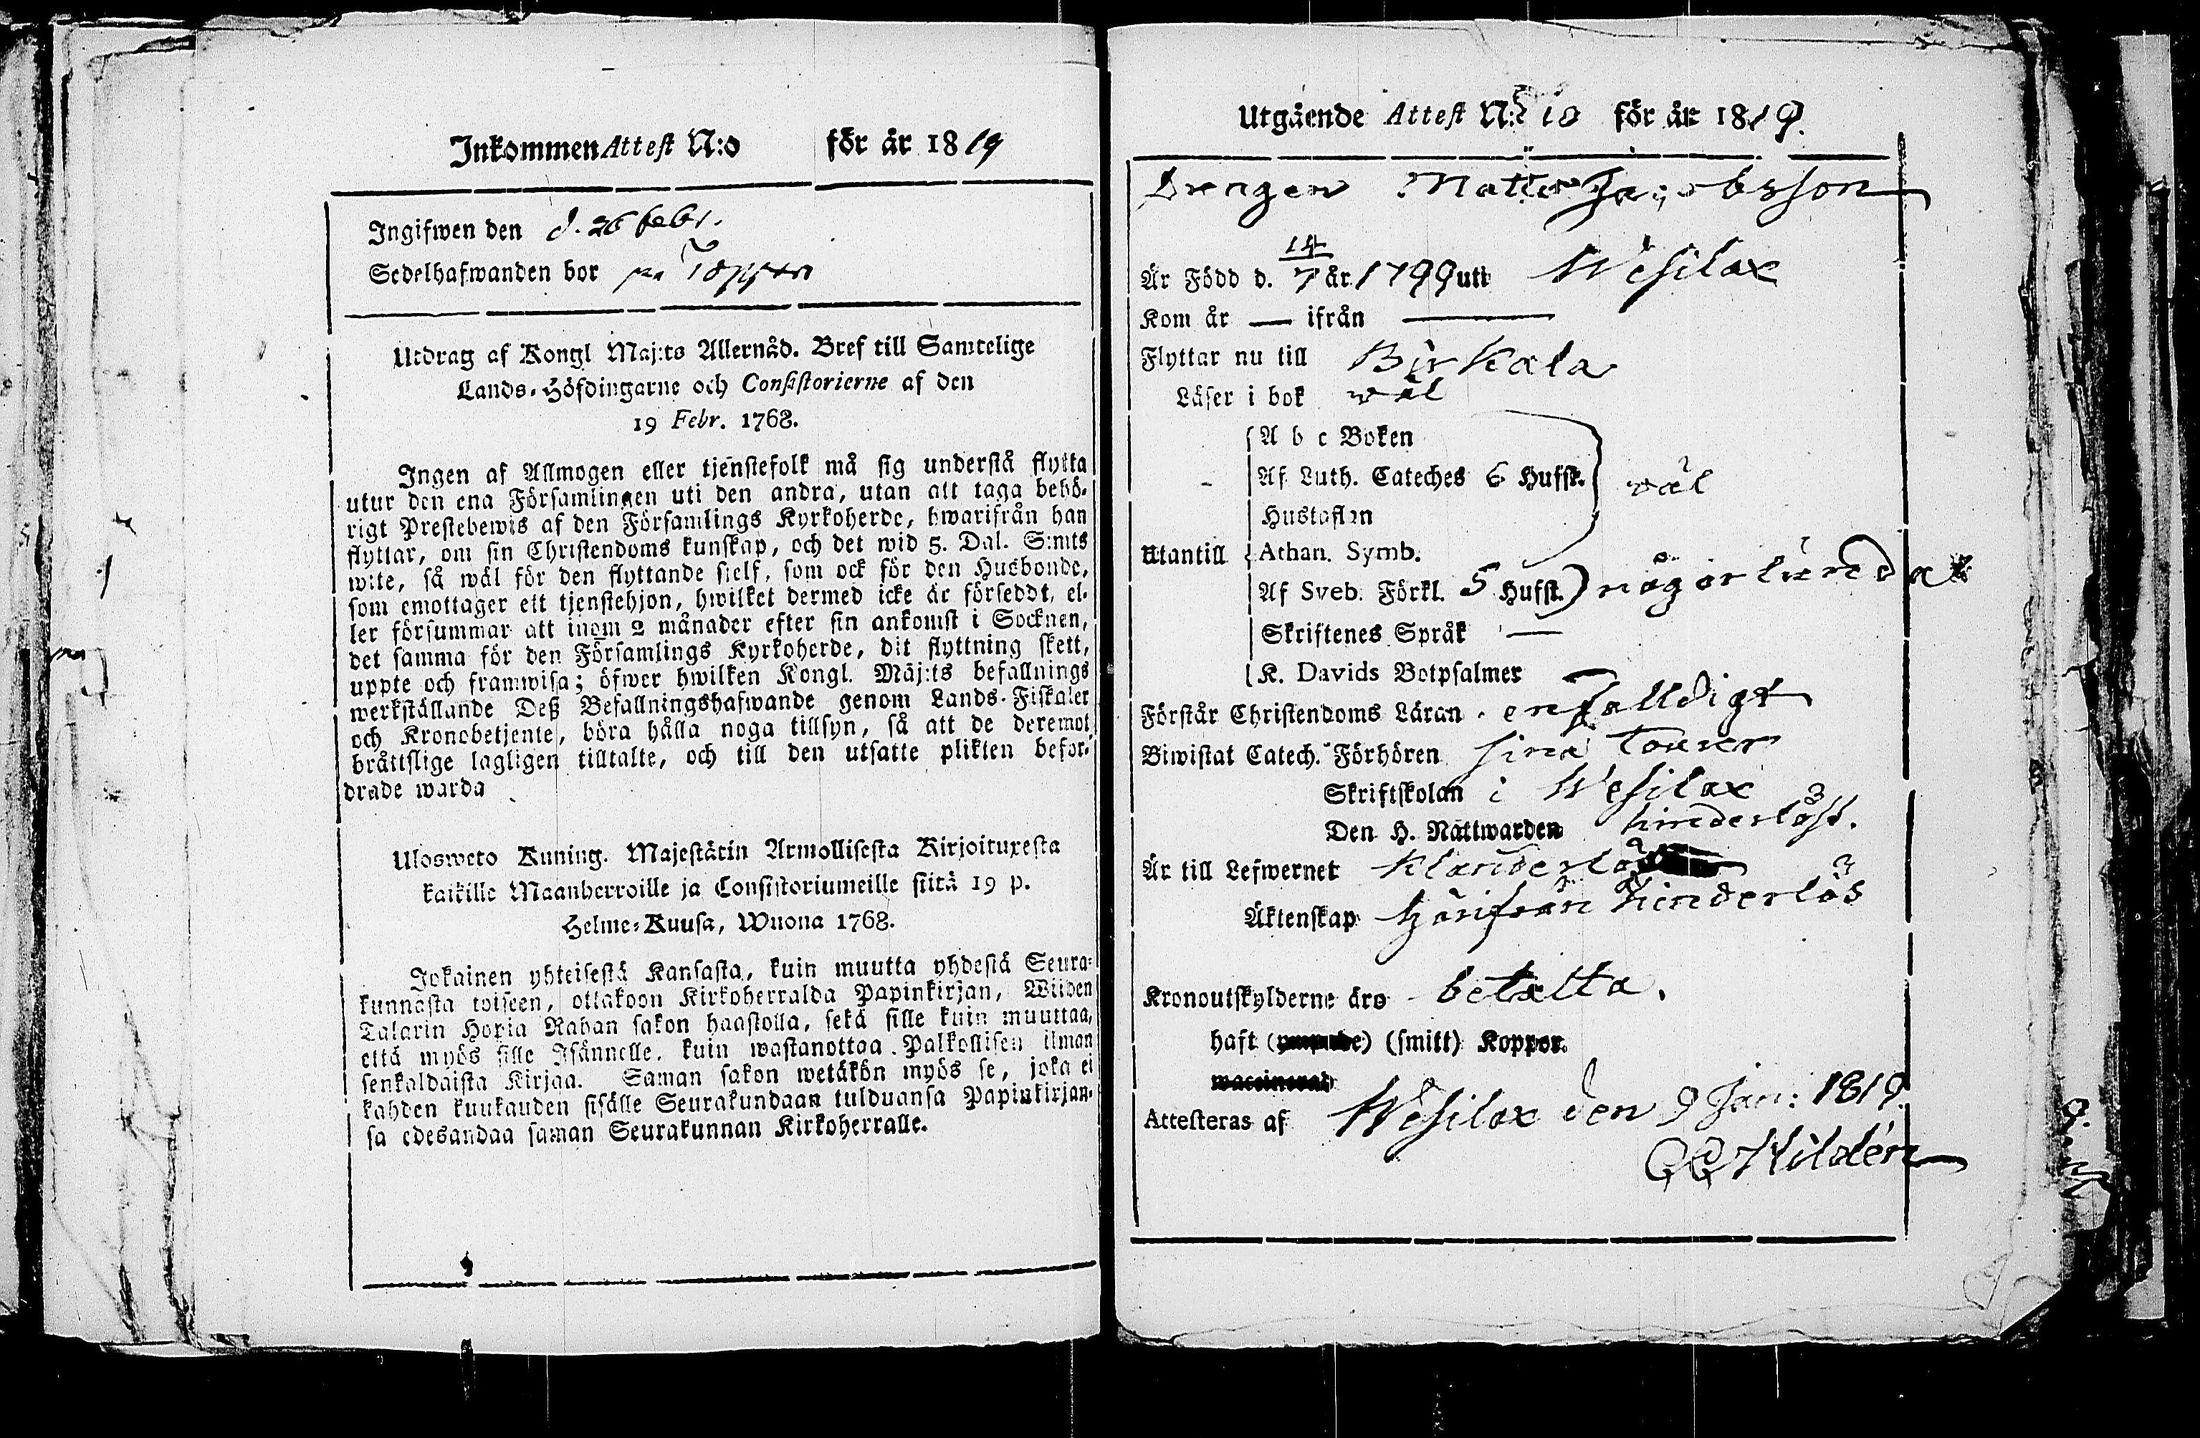 Inkommen Attest N:o för år 1819
Ingifwen den d. 26 febr.
Sedelhafwanden bor på
Utdrag af Kongl Maj:ts Allernåd. Bref till Samtelige
Lands-Höfdingarne och Consistorierne af den
19 Febr. 1768.
Ingen af Allmogen eller tjenstefolk må sig understå flytta
utur den ena Församlingen uti den andra, utan att taga behö-
rigt Prestebewis af den Församlings Kyrkoherde, hwarifrån han
flyttar, om sin Christendoms kunskap, och det wid 5. Dal. S:mts
wite, så wäl för den flyttande sjelf, som ock för den Husbonde,
som emottager ett tjenstehjon, hwilket dermed icke är försedt, el-
ler försummar att inom 2 månader efter sin ankomst i Socknen,
det samma för den Församlings Kyrkoherde, dit flyttning skett,
uppte och framwisa; öfwer hwilken Kongl. Maj:ts befallnings
werkställande Deß Befallningshafwande genom Lands-Fiskaler
och Kronobetjente, böra hålla noga tillsyn, så att de deremot
bråttslige lagligen tilltalte, och till den utsatte plikten befor-
drade warda
Ulosweto Kuning. Majestätin Armollisesta Kirjoituxesta
kaikille Maanherroille ja Consistoriumeille siitä 19 p.
Helme-Kuusa, Wuona 1768.
Jokainen yhteisestä Kansasta, kuin muutta yhdestä Seura-
kunnasta toiseen, ottakoon Kirkoherralda Papinkirjan, Wiiden
Talarin Hopia Rahan sakon haastolla, sekä sille kuin muuttaa,
että myös sille Isännelle, kuin wastanottaa Palkollisen ilman
senkaldaista Kirjaa. Saman sakon wetäkön myös se, joka ei
kahden kuukauden sisälle Seurakundaan tulduansa Papinkirjan-
sa edesandaa saman Seurakunnan Kirkoherralle.
Utgående Attest N:o 18 för år 1819.
Drengen Matts Jacobsson
Är Född d. 14/7 år 1799 uti Wesilax
Kom år — ifrån —
Flyttar nu till Birkala
Läser i bok wäl
A b c Boken
Af Luth. Cateches 6 Hufst. wäl
Hustaflan
Utantill Athan. Symb.
Af Sveb. Förkl. 5 Hufst. någorlunda
Skriftenes Språk —
K. Davids Botpsalmer
Förstår Christendoms Läran enfalldigt
Biwistat Catech. Förhören sina
Skriftskolan i Wesilax
Den H. Nattwarden hinderlöst.
Är till Lefwernet
Äktenskap härifrån hinderlös
Kronoutskylderne äro betalta.
haft (smitt) Koppor.
Attesteras af Wesilax den 9 Jan: 1819
Hildén